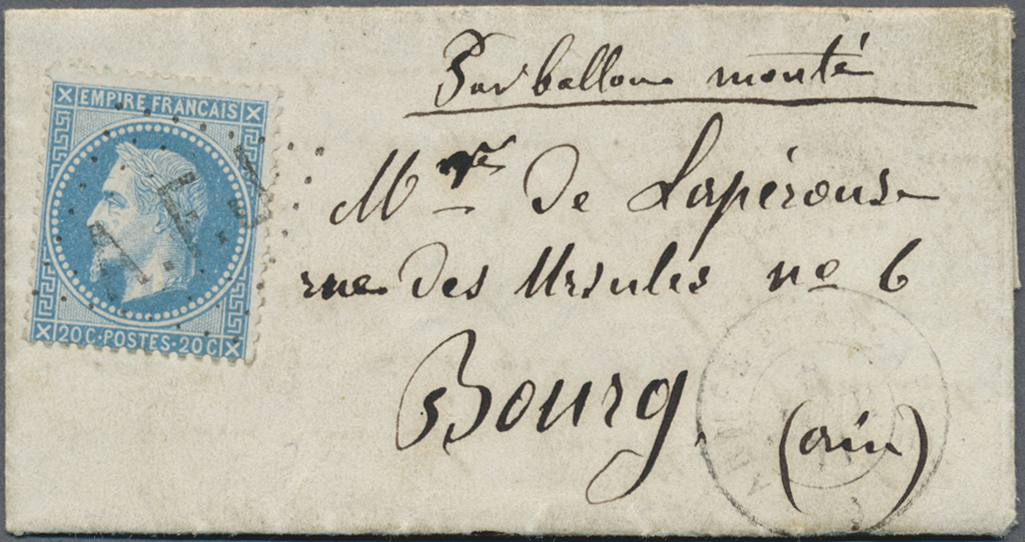 Par ballon monté
EMPIRE FRANCAIS
Mme de Lapérouse
rue des Ursules no 6
20 C · POSTES · 20 C
Bourg.
(ain)